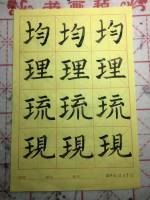 均均均
理理理
琉琉琉
現現現